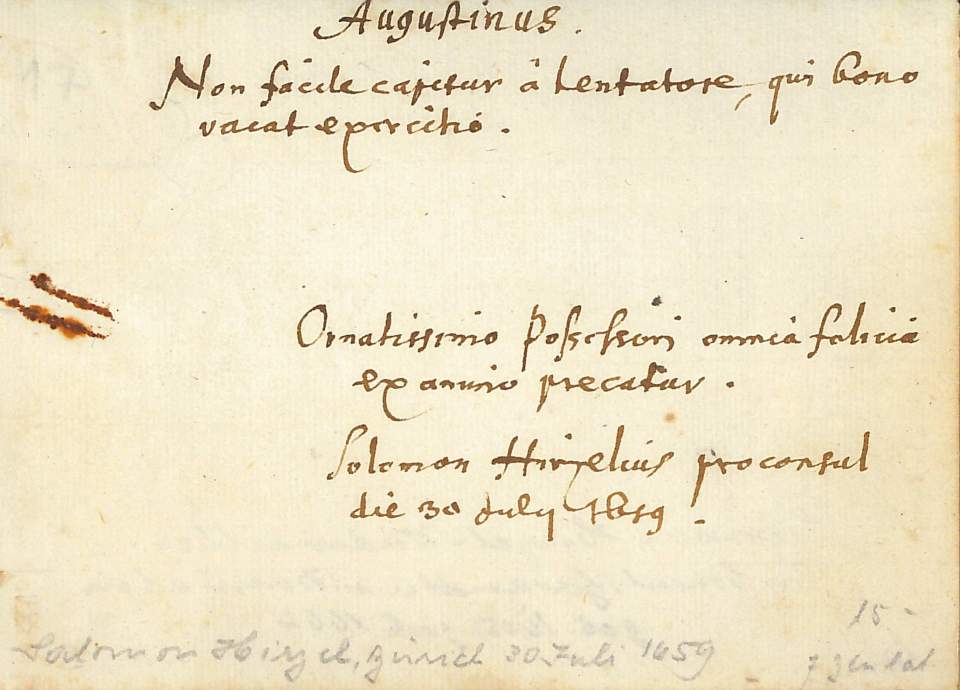 Augustinus.
Non facile capitur â tentatore, qui bono
vacat exercitio.
Ornatissimo Possessori omnia felicia
ex animo precatur.
Solomon Hirzelius proconsul
die 30 Julij 1659.
15 -
Salomon Hirzel, Zürich 30 Juli 1659